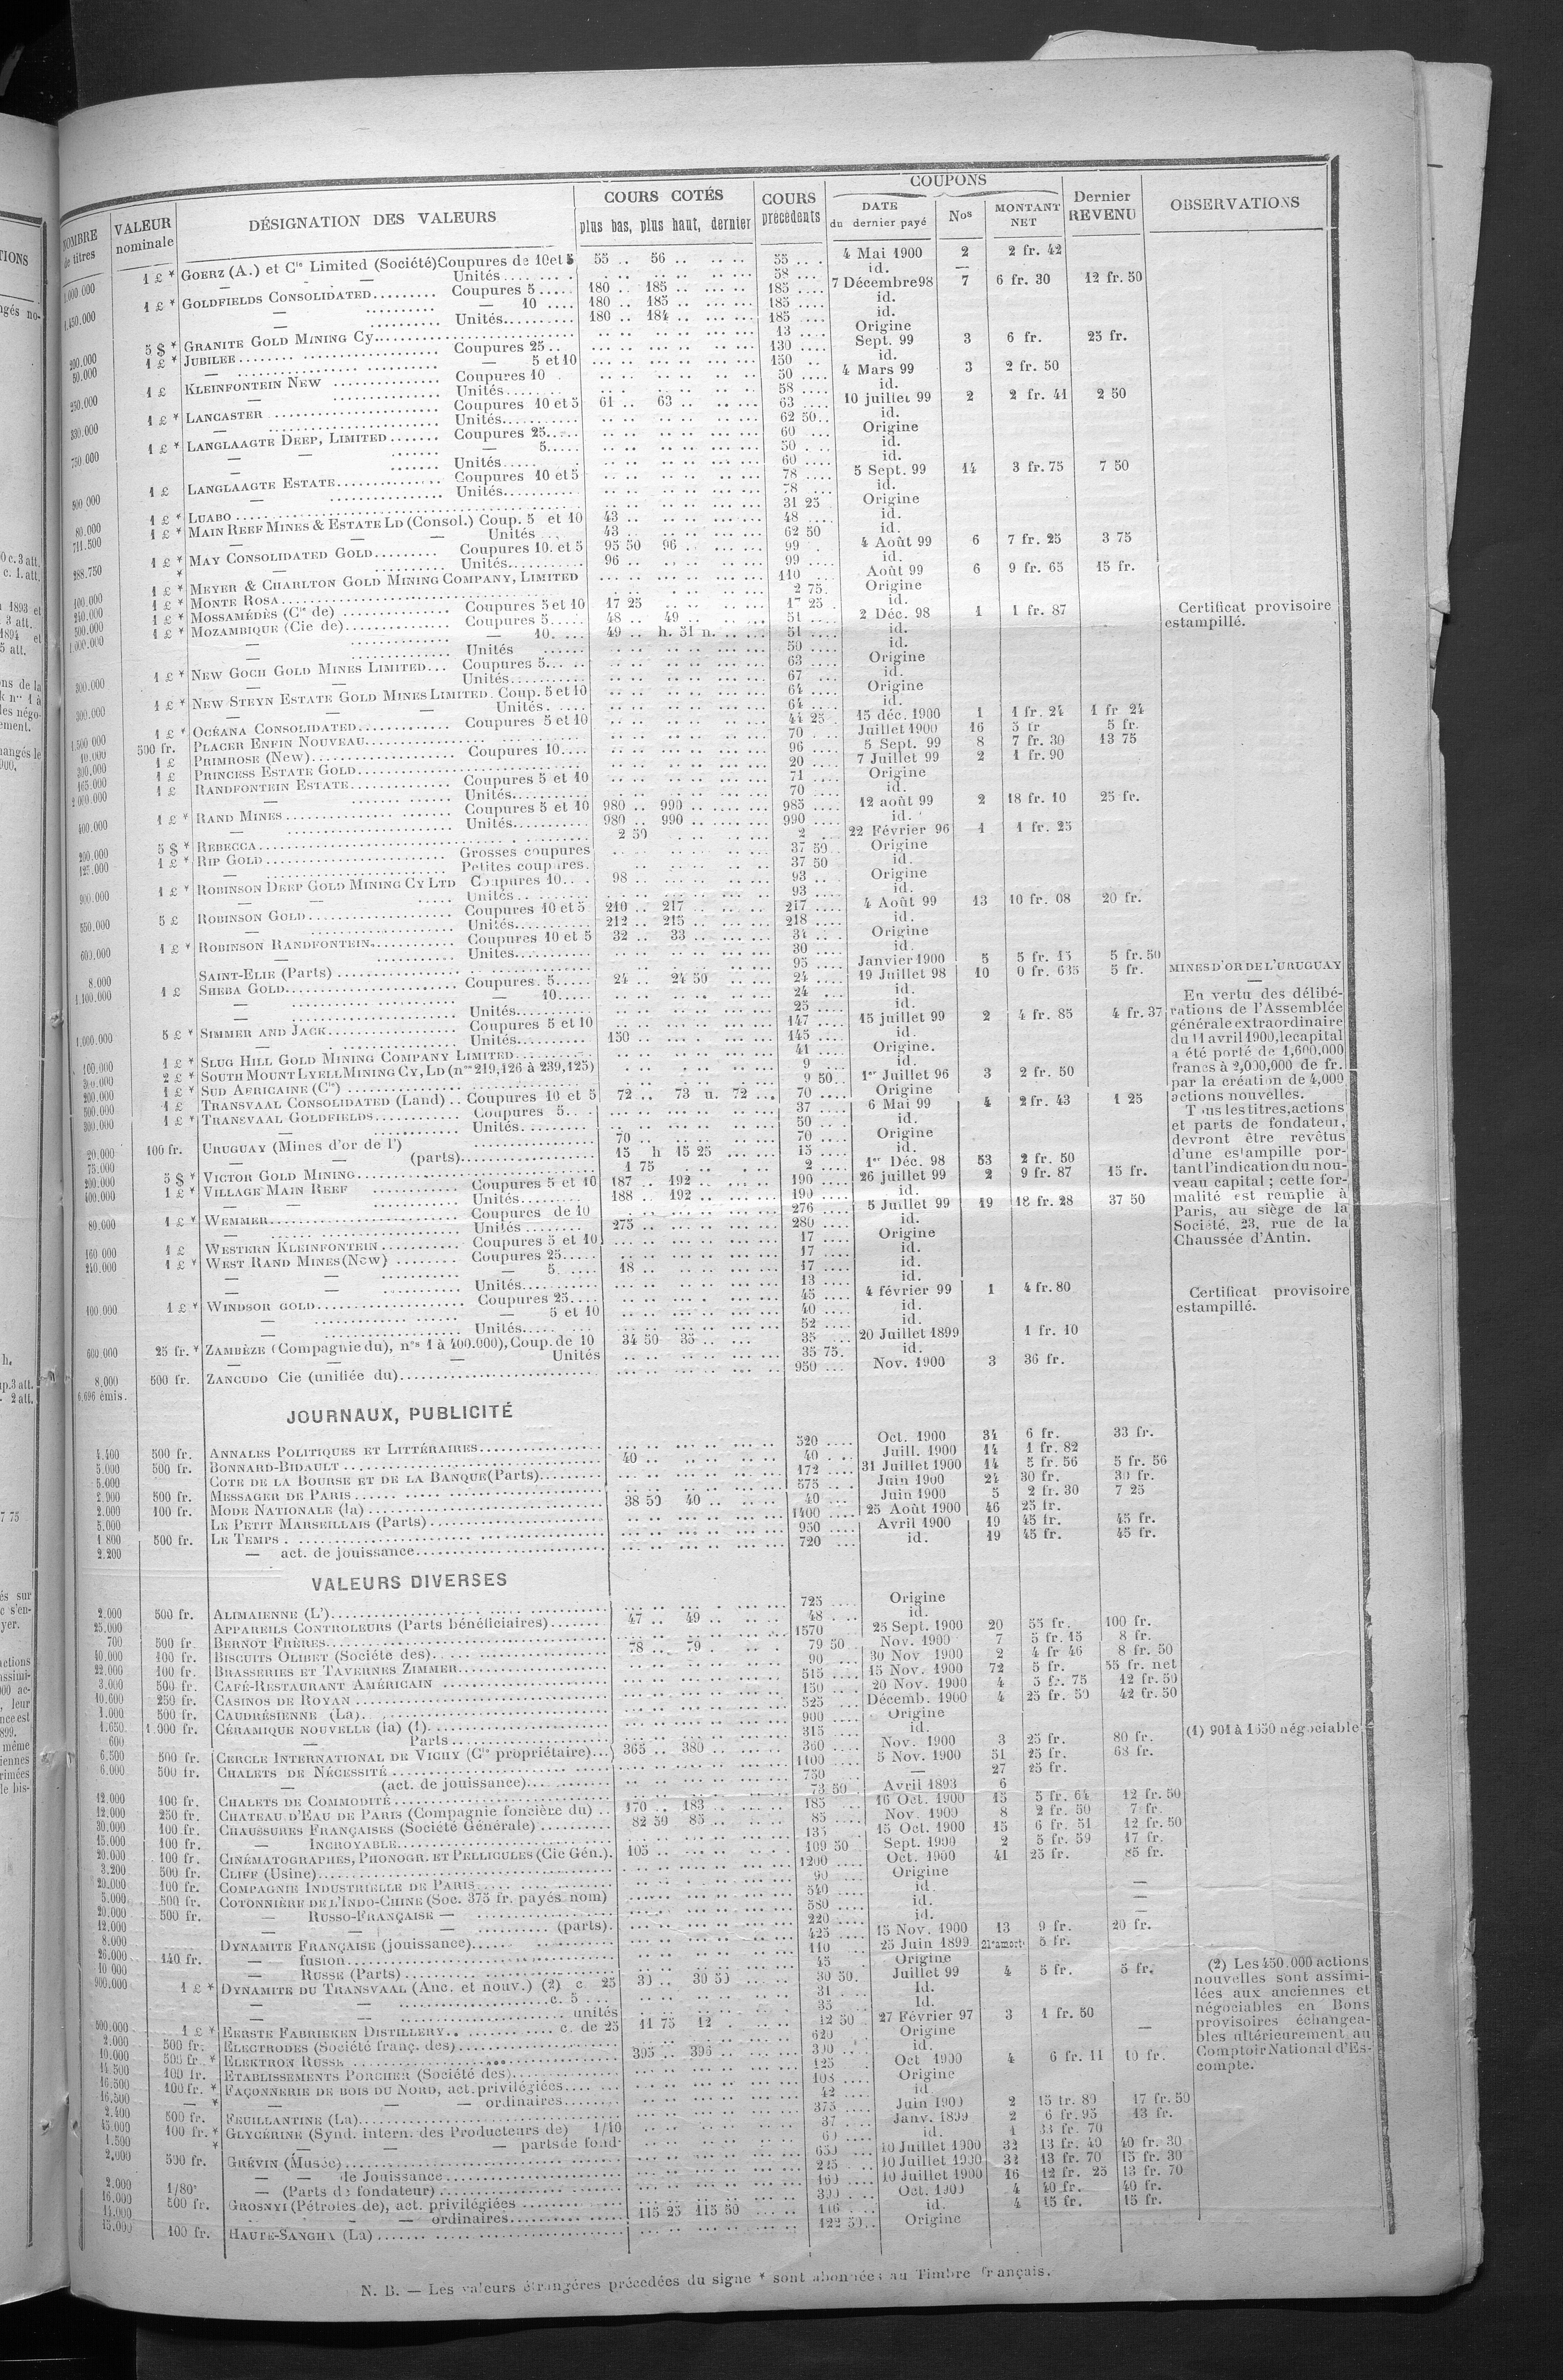 NOMBRE de titres | VALEUR nominale | DÉSIGNATION DES VALEURS | COURS COTÉS plus bas, plus haut, dernier | COURS précédents | COUPONS DATE du dernier payé | Nos | MONTANT NET | Dernier REVENU | OBSERVATIONS
1 £ * GOERZ (A.) et Cie Limited (Société) Coupures de 10 et 5 55 .. 56 .. 55 4 Mai 1900 2 2 fr. 42
— — Unités 58 id. —
1 £ * GOLDFIELDS CONSOLIDATED Coupures 5 180 .. 185 .. 185 7 Décembre 98 7 6 fr. 30 12 fr. 50
— — 10 180 .. 185 .. 185 id.
Unités 180 .. 184 .. 185 id.
5 $ * GRANITE GOLD MINING Cy 13 Origine
200.000 1 £ * JUBILEE Coupures 25 130 Sept. 99 3 6 fr. 25 fr.
50.000 — — 5 et 10 150 id.
250.000 1 £ KLEINFONTEIN NEW Coupures 10 50 4 Mars 99 3 2 fr. 50
— Unités 58 id.
330.000 1 £ * LANCASTER Coupures 10 et 5 61 .. 63 .. 63 10 juillet 99 2 2 fr. 41 2 50
Unités 62 50 id.
750.000 1 £ * LANGLAAGTE DEEP, LIMITED Coupures 25 60 Origine
— — — 5 50 id.
— Unités 60 id.
1 £ LANGLAAGTE ESTATE Coupures 10 et 5 78 5 Sept. 99 14 3 fr. 75 7 50
— Unités 78 id.
1 £ * LUABO 31 25 Origine
80.000 1 £ * MAIN REEF MINES & ESTATE LD (Consol.) Coup. 5 et 10 43 .. 48 id.
711.500 — — Unités 43 .. 62 50 id.
288.750 1 £ * MAY CONSOLIDATED GOLD Coupures 10. et 5 95 50 96 .. 99 4 Août 99 6 7 fr. 25 3 75
* — Unités 96 .. 99 id.
100.000 1 £ * MEYER & CHARLTON GOLD MINING COMPANY, LIMITED 110 Août 99 6 9 fr. 65 15 fr.
240.000 1 £ * MONTE ROSA 2 75 Origine
500.000 1 £ * MOSSAMÉDÈS (Cie de) Coupures 5 et 10 17 25 17 25 id.
1.000.000 1 £ * MOZAMBIQUE (Cie de) Coupures 5 48 .. 49 .. 51 2 Déc. 98 1 1 fr. 87 Certificat provisoire
— 10 49 .. h. 51 n. 51 id. estampillé.
— Unités 50 id.
300.000 1 £ * NEW GOCH GOLD MINES LIMITED Coupures 5 63 Origine
— — Unités 67 id.
300.000 1 £ * NEW STEYN ESTATE GOLD MINES LIMITED. Coup. 5 et 10 64 Origine
— — Unités 64 id.
1.500 000 1 £ * OCÉANA CONSOLIDATED Coupures 5 et 10 44 25 15 déc. 1900 1 1 fr. 24 1 fr 24
10.000 500 fr. PLACER ENFIN NOUVEAU 70 Juillet 1900 16 5 fr 5 fr.
300.000 1 £ PRIMROSE (New) Coupures 10 96 5 Sept. 99 8 7 fr. 30 13 75
165.000 1 £ PRINCESS ESTATE GOLD 20 7 Juillet 99 2 1 fr. 90
2.000.000 1 £ RANDFONTEIN ESTATE Coupures 5 et 10 71 Origine
— Unités 70 id.
400.000 1 £ * RAND MINES Coupures 5 et 10 980 .. 990 .. 985 12 août 99 2 18 fr. 10 25 fr.
— Unités 980 .. 990 .. 990 id.
200.000 5 $ * REBECCA 2 50 2 22 Février 96 1 1 fr. 25
125.000 1 £ * RIP GOLD Grosses coupures 37 50 Origine
— Petites coupures. 37 50 id.
900.000 1 £ * ROBINSON DEEP GOLD MINING CY LTD Coupures 10 98 .. 93 Origine
— — Unités 93 id.
550.000 5 £ ROBINSON GOLD Coupures 10 et 5 210 .. 217 .. 217 4 Août 99 13 10 fr. 08 20 fr.
— Unités 212 .. 215 .. 218 id.
600.000 1 £ * ROBINSON RANDFONTEIN Coupures 10 et 5 32 .. 33 .. 34 Origine
— Unités 30 id.
8.000 SAINT-ELIE (Parts) 95 Janvier 1900 5 5 fr. 15 5 fr. 50
1.100.000 1 £ SHEBA GOLD Coupures. 5 24 .. 24 50 24 19 Juillet 98 10 0 fr. 635 5 fr. MINES D'OR DE L'URUGUAY
— — 10 24 id.
— Unités 25 id.
1.000.000 5 £ * SIMMER AND JACK Coupures 5 et 10 147 15 juillet 99 2 4 fr. 85 4 fr. 37
— Unités 150 .. 145 id.
100.000 1 £ * SLUG HILL GOLD MINING COMPANY LIMITED 41 Origine.
2 £ * SOUTH MOUNT LYELL MINING CY, LD (nos 219,126 à 239,125) 9 id.
200.000 1 £ * SUD AFRICAINE (Cie) 9 50 1er Juillet 96 3 2 fr. 50
500.000 1 £ TRANSVAAL CONSOLIDATED (Land) Coupures 10 et 5 72 .. 73 u. 72 70 Origine
300.000 1 £ * TRANSVAAL GOLDFIELDS Coupures 5 37 6 Mai 99 4 2 fr. 43 1 25
— Unités 50 id.
20.000 100 fr. URUGUAY (Mines d'or de l') 70 .. 70 Origine
75.000 — — (parts) 15 h 15 25 15 id.
200.000 5 $ * VICTOR GOLD MINING 1 75 2 1er Déc. 98 53 2 fr. 50
400.000 1 £ * VILLAGE MAIN REEF Coupures 5 et 10 187 .. 192 .. 190 26 juillet 99 2 9 fr. 87 15 fr.
— — Unités 188 .. 192 .. 190 id.
80.000 1 £ * WEMMER Coupures de 10 276 5 Juillet 99 19 18 fr. 28 37 50
— Unités 275 .. 280 id.
160 000 1 £ WESTERN KLEINFONTEIN Coupures 5 et 10 17 Origine
240.000 1 £ * WEST RAND MINES (New) Coupures 25 17 id.
— — — 5 18 .. 17 id.
— — Unités 13 id.
100.000 1 £ * WINDSOR GOLD Coupures 25 45 4 février 99 1 4 fr. 80
— — 5 et 10 40 id.
— Unités 52 id.
600 000 25 fr. * ZAMBÈZE (Compagnie du), nos 1 à 400.000), Coup. de 10 34 50 35 .. 35 20 Juillet 1899 1 fr. 10
— — — Unités 35 75 id.
8.000 500 fr. ZANCUDO Cie (unifiée du) 950 Nov. 1900 3 36 fr.
6.696 émis.
En vertu des délibé-
rations de l'Assemblée
générale extraordinaire
du 11 avril 1900, le capital
a été porté de 1,600,000
francs à 2,000,000 de fr.
par la création de 4,000
actions nouvelles.
Tous les titres, actions
et parts de fondateur,
devront être revêtus
d'une estampille por-
tant l'indication du nou-
veau capital ; cette for-
malité est remplie à
Paris, au siège de la
Société, 23, rue de la
Chaussée d'Antin.
Certificat provisoire
estampillé.
JOURNAUX, PUBLICITÉ
4.400 500 fr. ANNALES POLITIQUES ET LITTÉRAIRES 520 Oct. 1900 34 6 fr. 33 fr.
5.000 500 fr. BONNARD-BIDAULT 40 .. 40 Juill. 1900 14 1 fr. 82
5.000 COTE DE LA BOURSE ET DE LA BANQUE (Parts) 172 31 Juillet 1900 14 5 fr. 56 5 fr. 56
2.900 500 fr. MESSAGER DE PARIS 575 Juin 1900 24 30 fr. 30 fr.
2.000 100 fr. MODE NATIONALE (la) 38 50 40 .. 40 Juin 1900 5 2 fr. 30 7 25
5.000 LE PETIT MARSEILLAIS (Parts) 1400 25 Août 1900 46 25 fr.
1 800 500 fr. LE TEMPS 950 Avril 1900 19 45 fr. 45 fr.
2.200 — act. de jouissance 720 id. 19 45 fr. 45 fr.
VALEURS DIVERSES
2.000 500 fr. ALIMAIENNE (L') 725 Origine
25.000 APPAREILS CONTROLEURS (Parts bénéficiaires) 47 .. 49 .. 48 id.
700 500 fr. BERNOT FRÈRES 1570 25 Sept. 1900 20 55 fr. 100 fr.
40.000 100 fr. BISCUITS OLIBET (Société des) 78 .. 79 .. 79 50 Nov. 1900 7 5 fr. 15 8 fr.
22.000 100 fr. BRASSERIES ET TAVERNES ZIMMER 90 30 Nov 1900 2 4 fr 46 8 fr. 50
3.000 500 fr. CAFÉ-RESTAURANT AMÉRICAIN 515 15 Nov. 1900 72 5 fr. 55 fr. net
10.600 250 fr. CASINOS DE ROYAN 150 20 Nov. 1900 4 5 fr. 75 12 fr. 50
1.000 500 fr. CAUDRÉSIENNE (La) 525 Décemb. 1900 4 25 fr. 50 42 fr. 50
1.650 1.000 fr. CÉRAMIQUE NOUVELLE (la) (1) 900 Origine
600 — Parts 315 id. (1) 901 à 1650 négociable
6.500 500 fr. CERCLE INTERNATIONAL DE VICHY (Cie propriétaire) 365 .. 380 .. 360 Nov. 1900 3 25 fr. 80 fr.
6.000 500 fr. CHALETS DE NÉCESSITÉ 1100 5 Nov. 1900 51 25 fr. 68 fr.
— (act. de jouissance) 750 — 27 25 fr.
12.000 100 fr. CHALETS DE COMMODITÉ 73 50 Avril 1893 6
12.000 250 fr. CHATEAU D'EAU DE PARIS (Compagnie foncière du) 170 .. 183 .. 185 16 Oct. 1900 15 5 fr. 64 12 fr. 50
30.000 100 fr. CHAUSSURES FRANÇAISES (Société Générale) 82 50 85 .. 85 Nov. 1900 8 2 fr. 50 7 fr.
15.000 100 fr. — INCROYABLE 135 15 Oct. 1900 15 6 fr. 51 12 fr. 50
20.000 100 fr. CINÉMATOGRAPHES, PHONOGR. ET PELLICULES (Cie Gén.) 105 .. 109 50 Sept. 1900 2 5 fr. 59 17 fr.
3.200 500 fr. CLIFF (Usine) 1200 Oct. 1900 41 25 fr. 85 fr.
20.000 100 fr. COMPAGNIE INDUSTRIELLE DE PARIS 90 Origine
5.000 500 fr. COTONNIÈRE DE L'INDO-CHINE (Soc. 375 fr. payés nom) 540 id. —
20.000 500 fr. — RUSSO-FRANÇAISE — 580 id. —
12.000 — — (parts). 220 id. —
8.000 DYNAMITE FRANÇAISE (jouissance) 425 15 Nov. 1900 13 9 fr. 20 fr.
26.000 140 fr. — fusion 110 25 Juin 1899 21e amort 5 fr.
10 000 — RUSSE (Parts) 45 Origine
900.000 1 £ * DYNAMITE DU TRANSVAAL (Anc. et nouv.) (2) c 25 30 .. 30 50 30 50 Juillet 99 4 5 fr. 5 fr.
— — c. 5 31 Id.
unités 35 Id.
500.000 1 £ * EERSTE FABRIEKEN DISTILLERY c. de 25 11 75 12 12 50 27 Février 97 3 1 fr. 50
2.000 500 fr. ELECTRODES (Société franç. des) 620 Origine —
10.000 500 fr. * ELEKTRON RUSSE 395 .. 396 .. 390 id.
14.500 100 fr. ETABLISSEMENTS PORCHER (Société des) 125 Oct 1900 4 6 fr. 11 10 fr.
16.500 100 fr. * FAÇONNERIE DE BOIS DU NORD, act. privilégiées 108 Origine
16.500 — * — — — ordinaires 42 id
2.400 500 fr. FEUILLANTINE (La) 375 Juin 1900 2 15 fr. 80 17 fr. 50
45.000 100 fr. * GLYCÉRINE (Synd. intern. des Producteurs de) 1/10 37 Janv. 1899 2 6 fr. 95 13 fr.
1.500 * — — — parts de fond. id. 1 33 fr. 70
2.000 500 fr. GRÉVIN (Musée) 650 10 Juillet 1900 32 13 fr. 40 40 fr. 30
— — de Jouissance 245 10 Juillet 1900 32 13 fr. 70 15 fr. 30
2.000 1/80e — (Parts de fondateur) 160 10 Juillet 1900 16 12 fr. 25 13 fr. 70
16.000 500 fr. GROSNYI (Pétroles de), act. privilégiées 390 Oct. 1900 4 40 fr. 40 fr.
14.000 — — ordinaires 115 25 115 50 116 id. 4 15 fr. 15 fr.
15.000 100 fr. HAUTE-SANGHA (La) 122 50 Origine
(2) Les 450.000 actions
nouvelles sont assimi-
lées aux anciennes et
négociables en Bons
provisoires échangea-
bles ultérieurement au
Comptoir National d'Es-
compte.
N. B. — Les valeurs étrangères précédées du signe * sont abonnées au Timbre français.